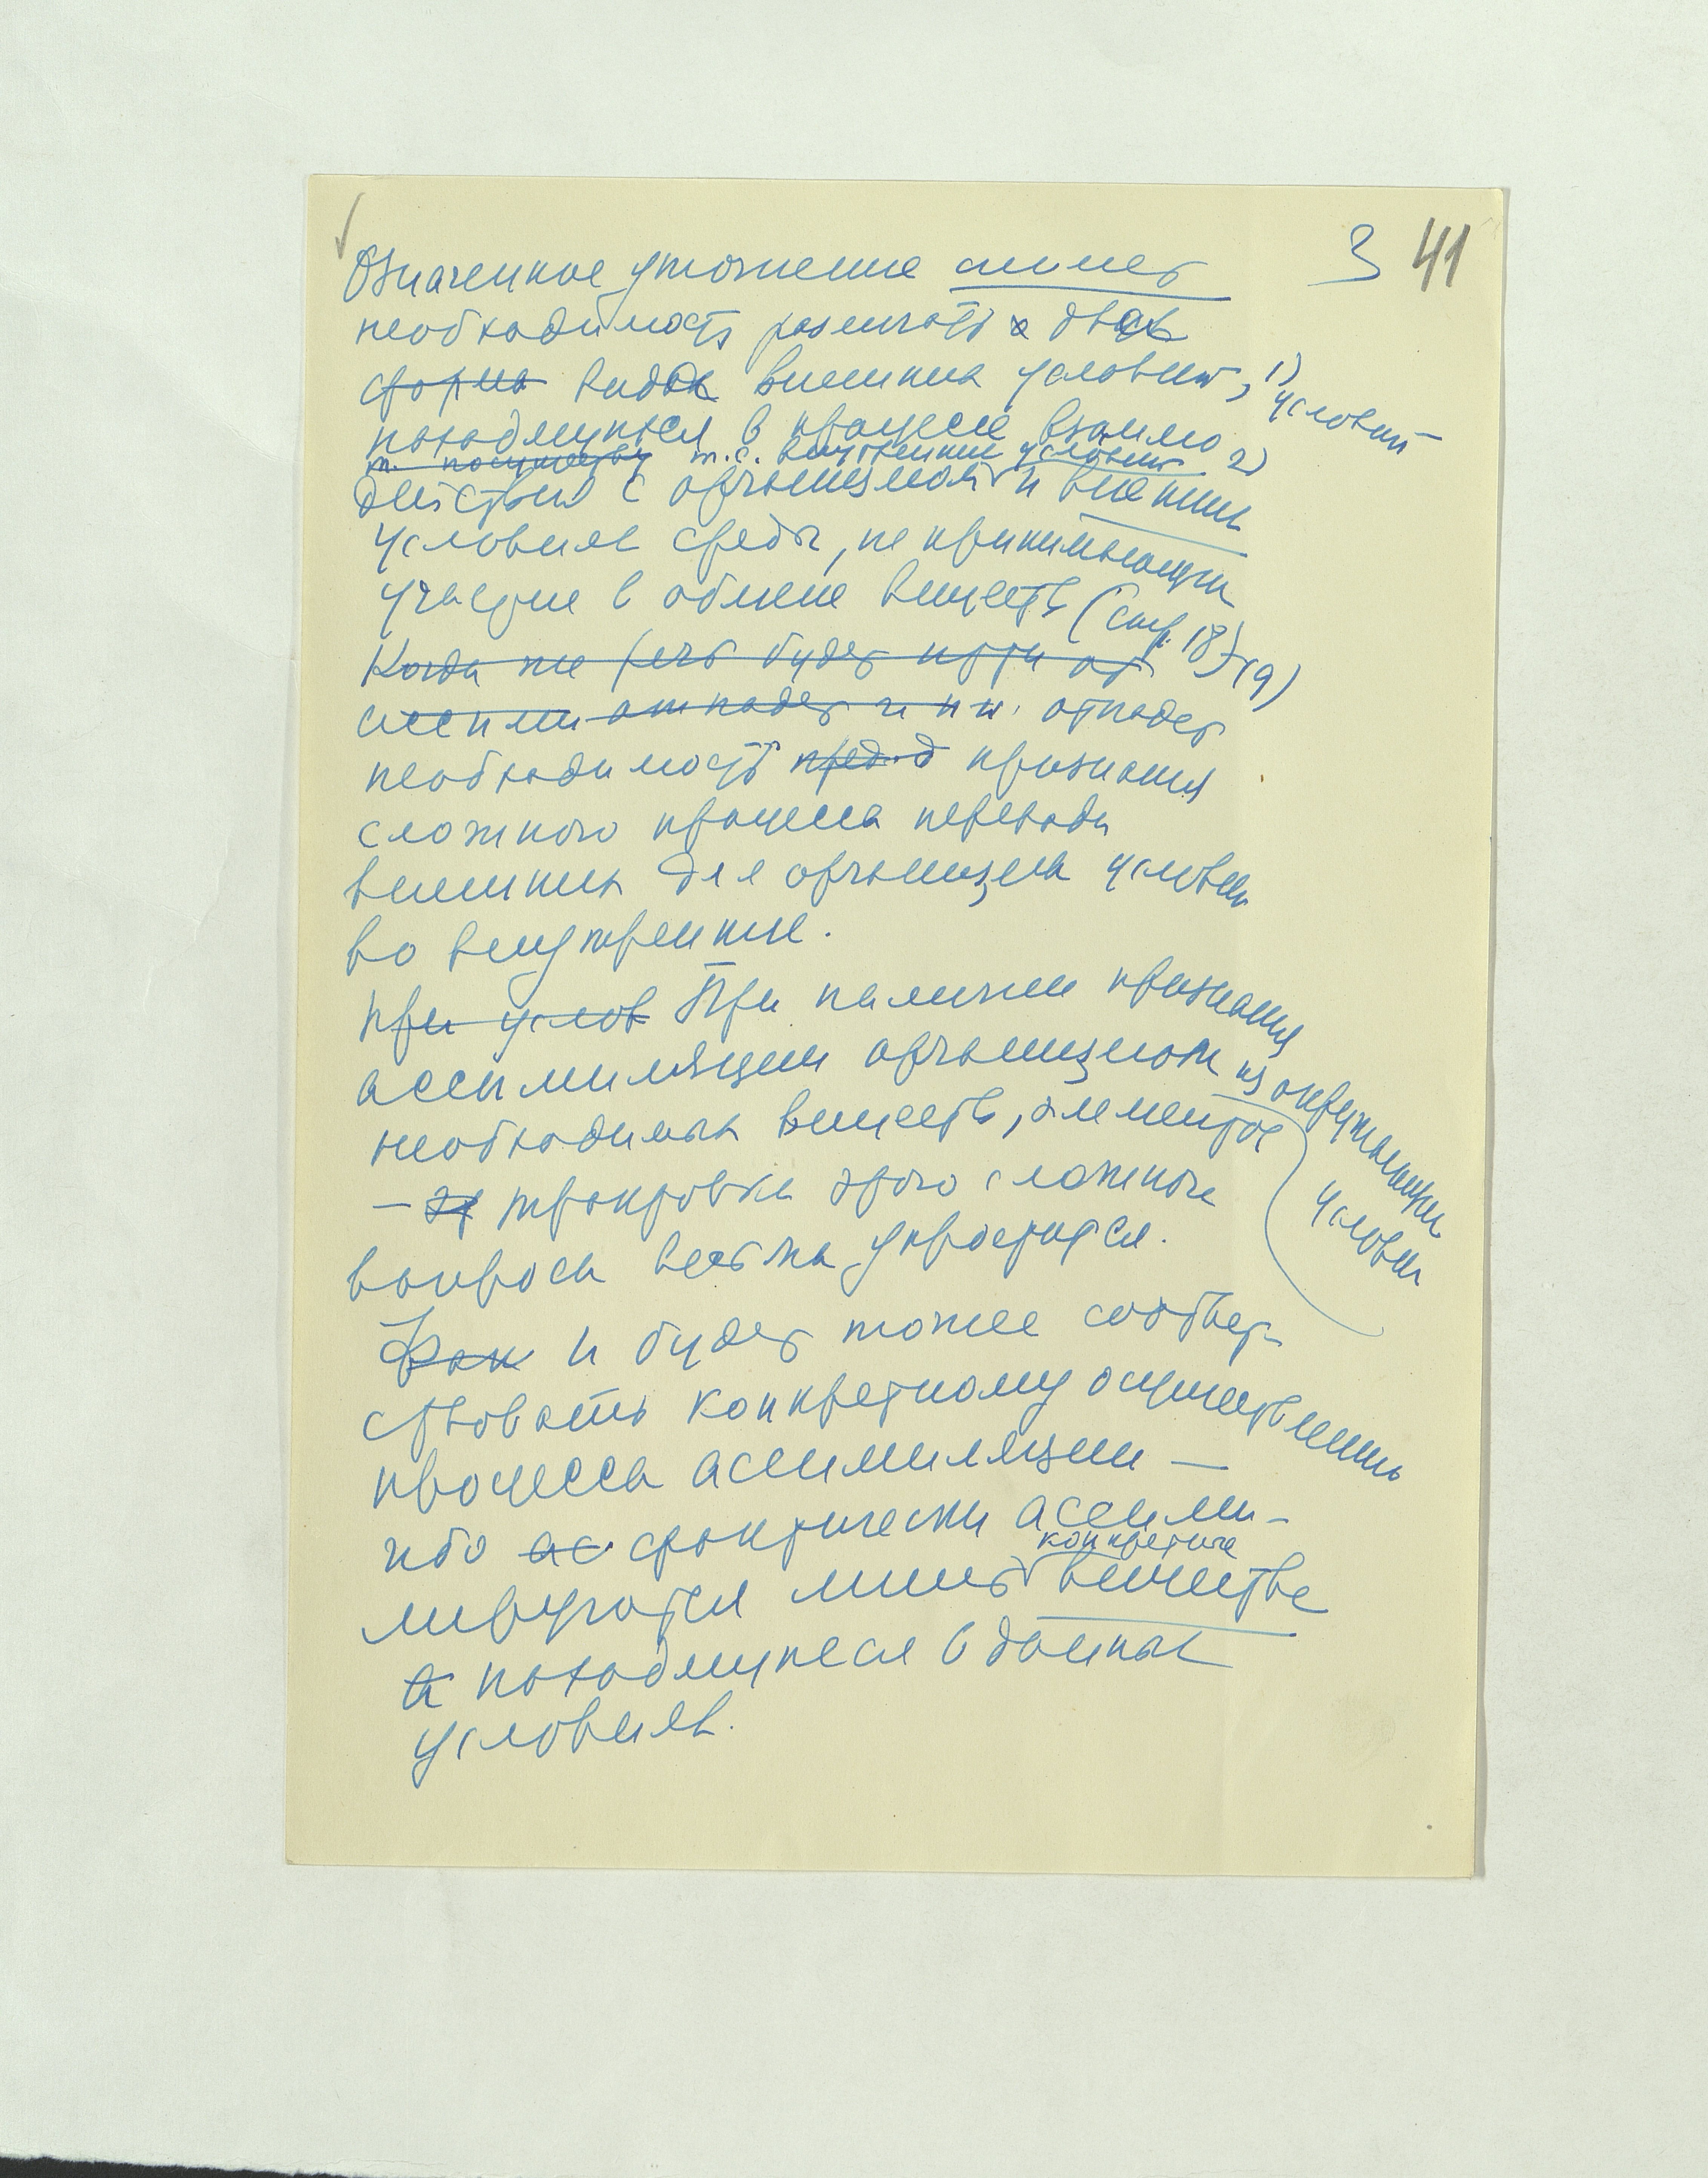 3 41
Означенное уточнение снимет
необходимость различать двух
форма видов внешних условий, 1) условий
находящихся в процессе взаимо
т.е. внутренние условия 2)
действия с организмом и внешних
условиях среды, не принимающих
участие в обмене веществ (стр. 18-19)
Когда же речь будет идти об
ассими отпадет и н. отпадет
необходимость признания
сложного процесса перевода
внешних для организма условий
во внутренние.
при услов При наличии признания
ассимиляции организмом из окружающих условий
необходимых веществ, элементов
— трактовка этого сложного
вопроса весьма упростится.
Как и будет точнее соответ-
ствовать конкретному осуществлению
процесса ассимиляции —
ибо ас. фактически ассими-
конкретные
лируются лишь вещества
находящиеся в данных
условиях.